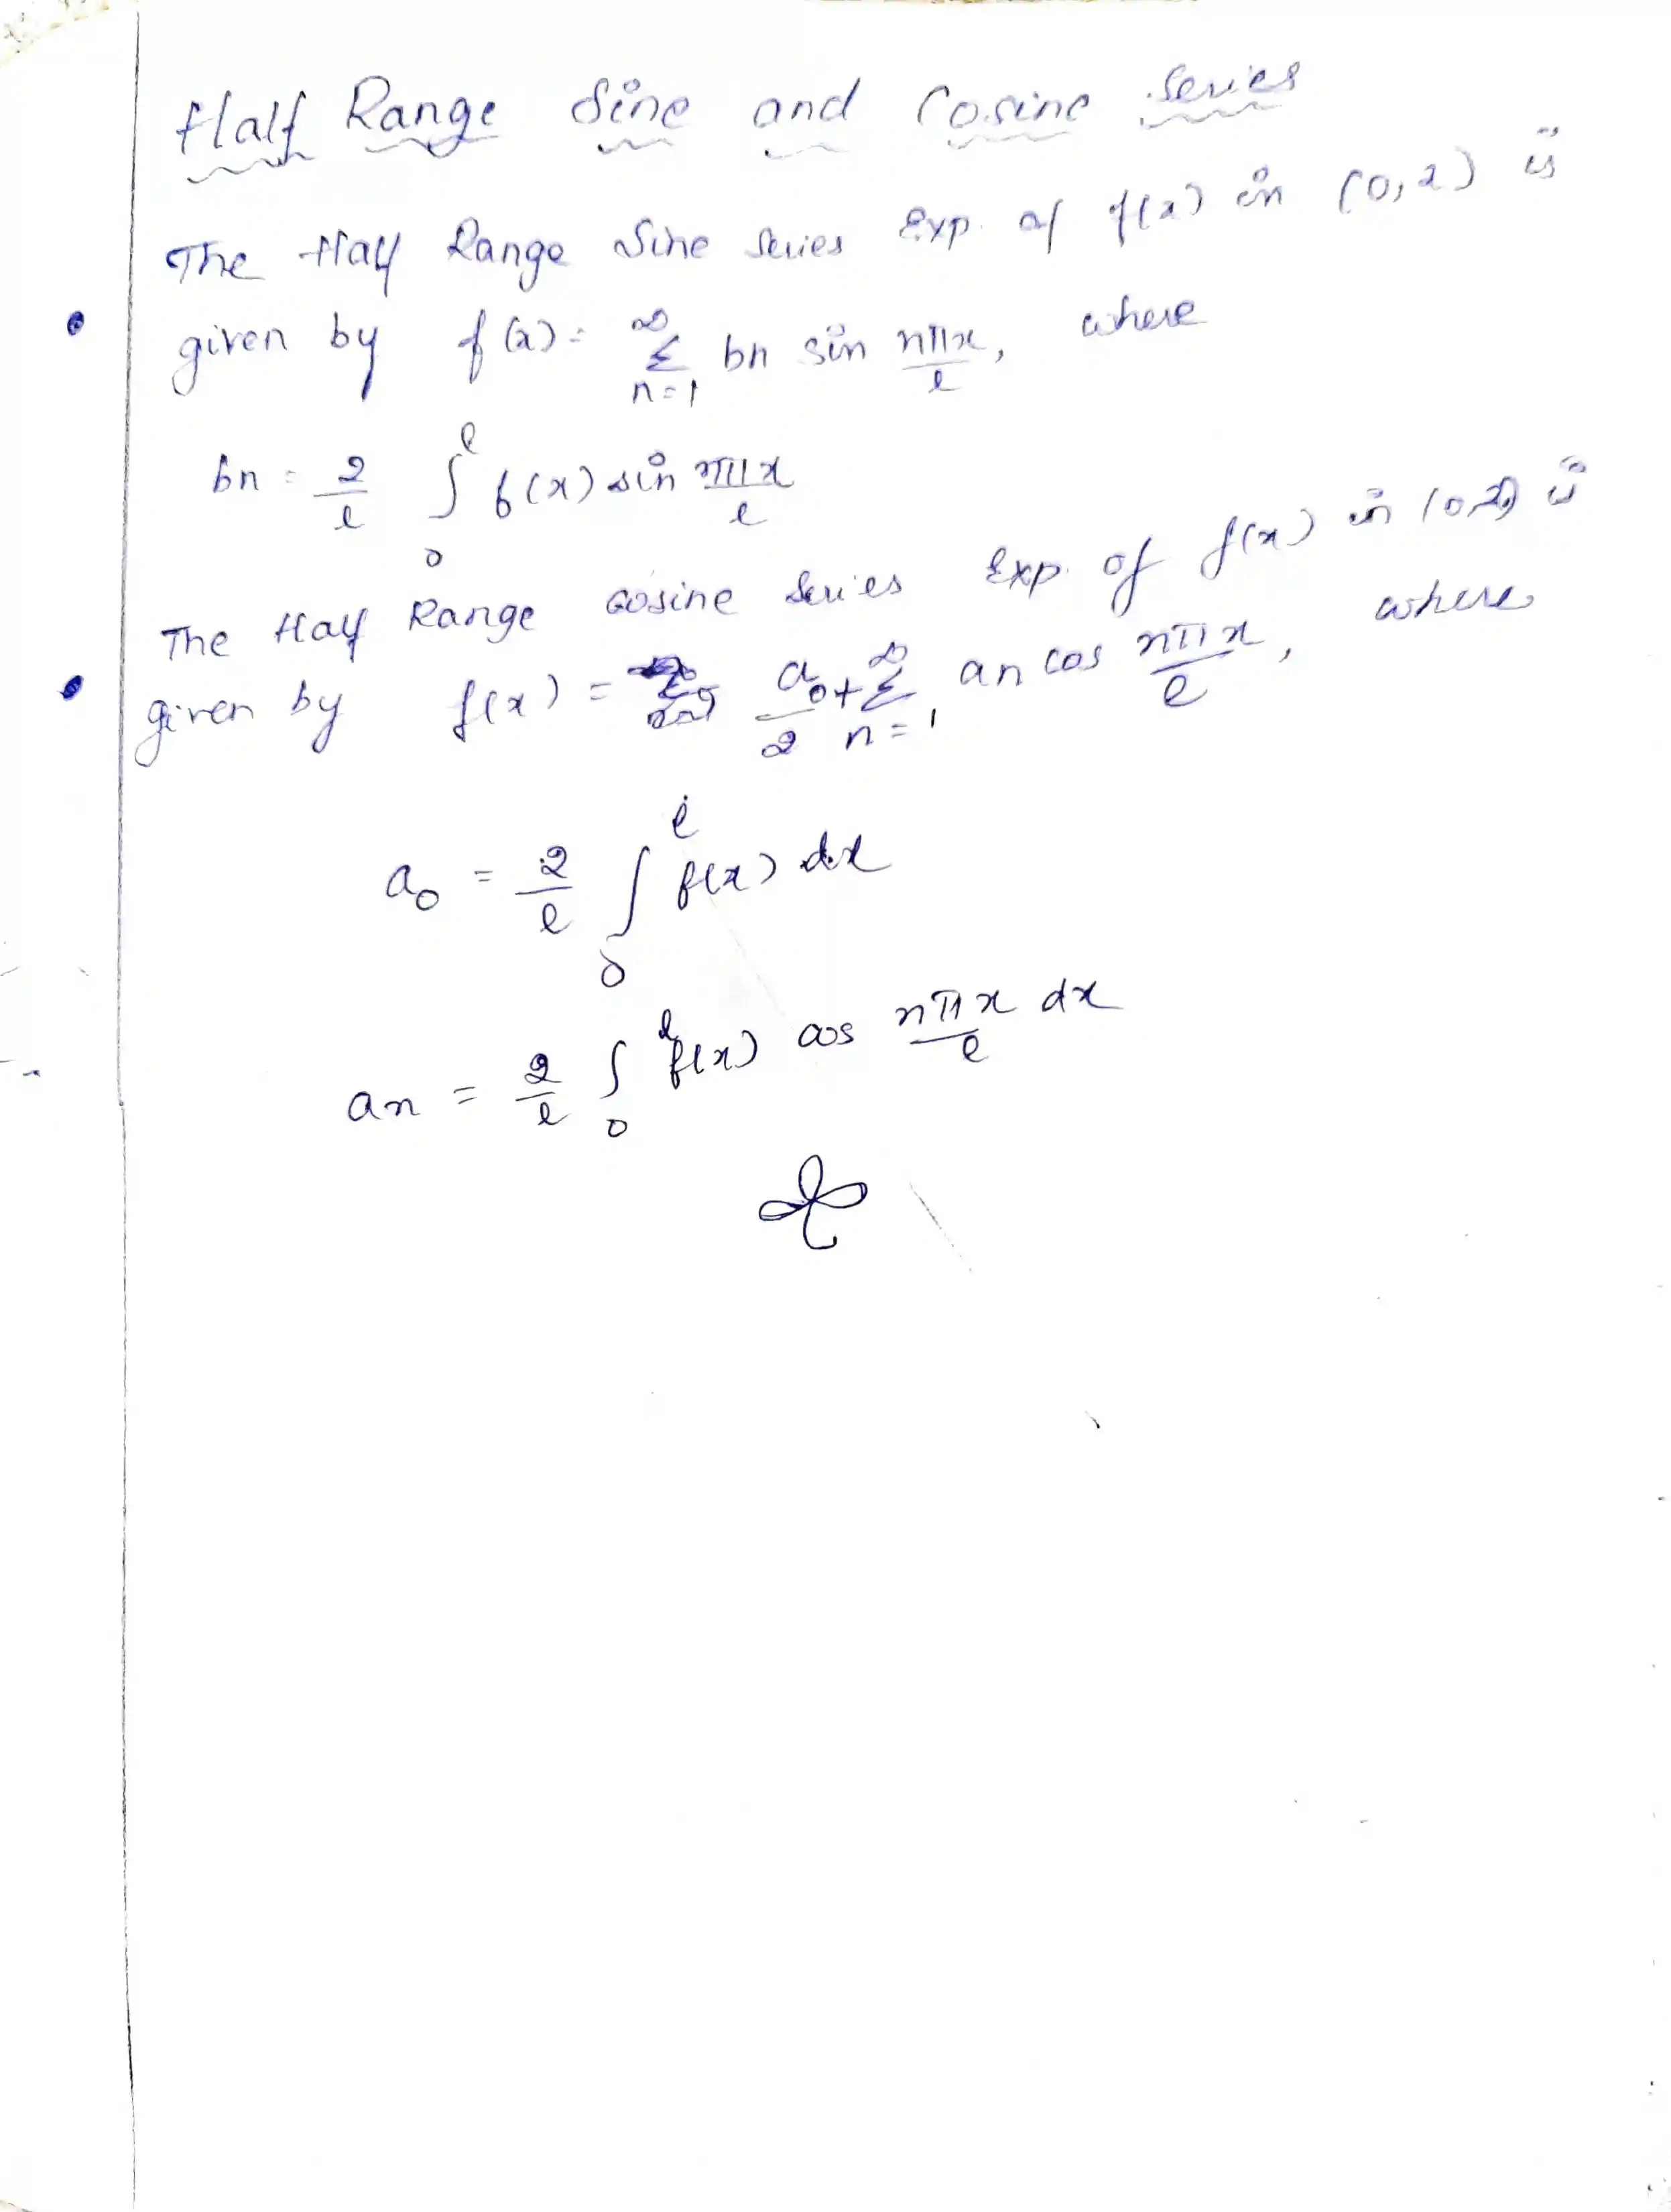 Half Range Sine and Cosine Series
The Half Range Sine Series Exp. of f(x) in (0, 2) is
given by f(x) = ∞Σn=1 bn sin nπx/l, where
bn = 2/l ∫₀ˡ f(x) sin nπx/l
The Half Range cosine Series Exp. of f(x) in (0, 2) is
given by f(x) = a₀/2 + ∞Σn=1 an cos nπx/l, where
a₀ = 2/l ∫₀ˡ f(x) dx
an = 2/l ∫₀ˡ f(x) cos nπx/l dx